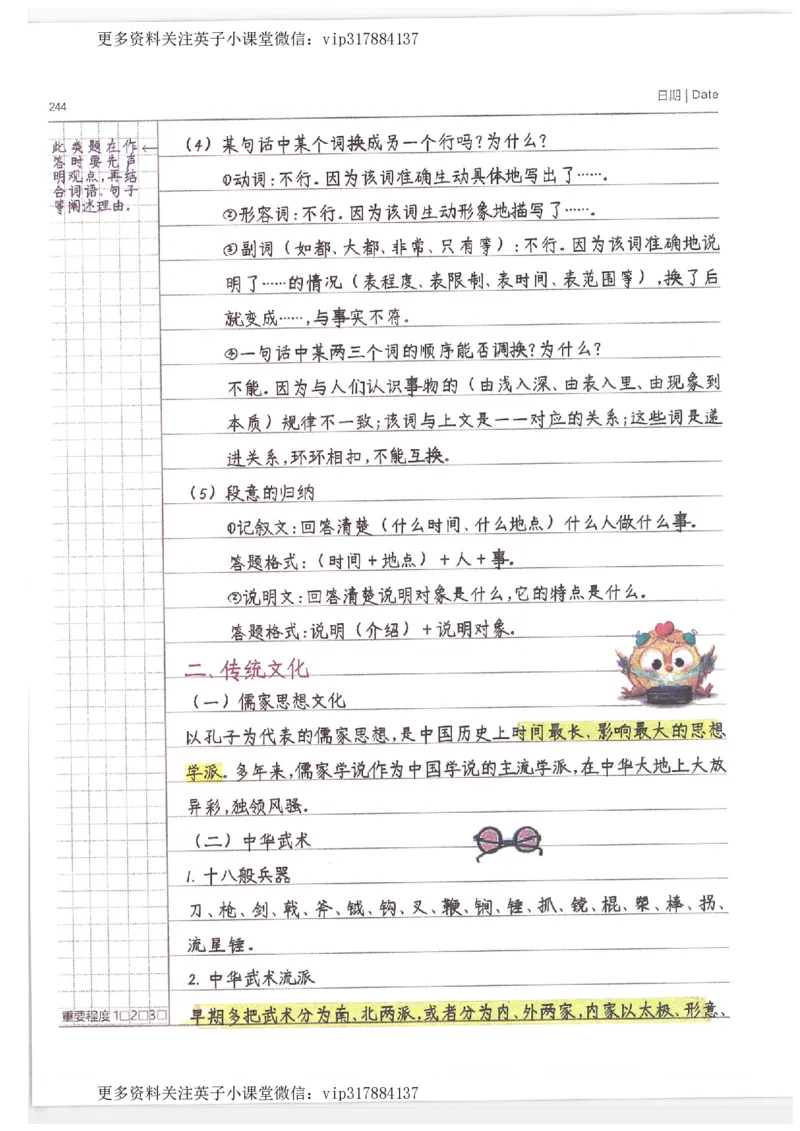 更多资料关注英子小课堂微信：vip317884137
244
日期 | Date
此类题在作
答时要先声
明观点,再结
合词语、句子
等阐述理由.
(4) 某句话中某个词换成另一个行吗?为什么?
①动词:不行.因为该词准确生动具体地写出了……。
②形容词:不行.因为该词生动形象地描写了……。
③副词(如都、大都、非常、只有等):不行.因为该词准确地说
明了……的情况(表程度、表限制、表时间、表范围等),换了后
就变成……,与事实不符。
④一句话中某两三个词的顺序能否调换?为什么?
不能.因为与人们认识事物的(由浅入深、由表入里、由现象到
本质)规律不一致;该词与上文是一一对应的关系;这些词是递
进关系,环环相扣,不能互换。
(5) 段意的归纳
①记叙文:回答清楚(什么时间、什么地点)什么人做什么事。
答题格式:(时间+地点)+人+事。
②说明文:回答清楚说明对象是什么,它的特点是什么。
答题格式:说明(介绍)+说明对象。
二、传统文化
(一)儒家思想文化
以孔子为代表的儒家思想,是中国历史上时间最长、影响最大的思想
学派。多年来,儒家学说作为中国学说的主流学派,在中华大地上大放
异彩,独领风骚。
(二)中华武术
1. 十八般兵器
刀、枪、剑、戟、斧、钺、钩、叉、鞭、锏、锤、抓、镋、棍、槊、棒、拐、
流星锤。
2. 中华武术流派
早期多把武术分为南、北两派,或者分为内、外两家,内家以太极、形意、
重要程度 1□2□3□
更多资料关注英子小课堂微信：vip317884137